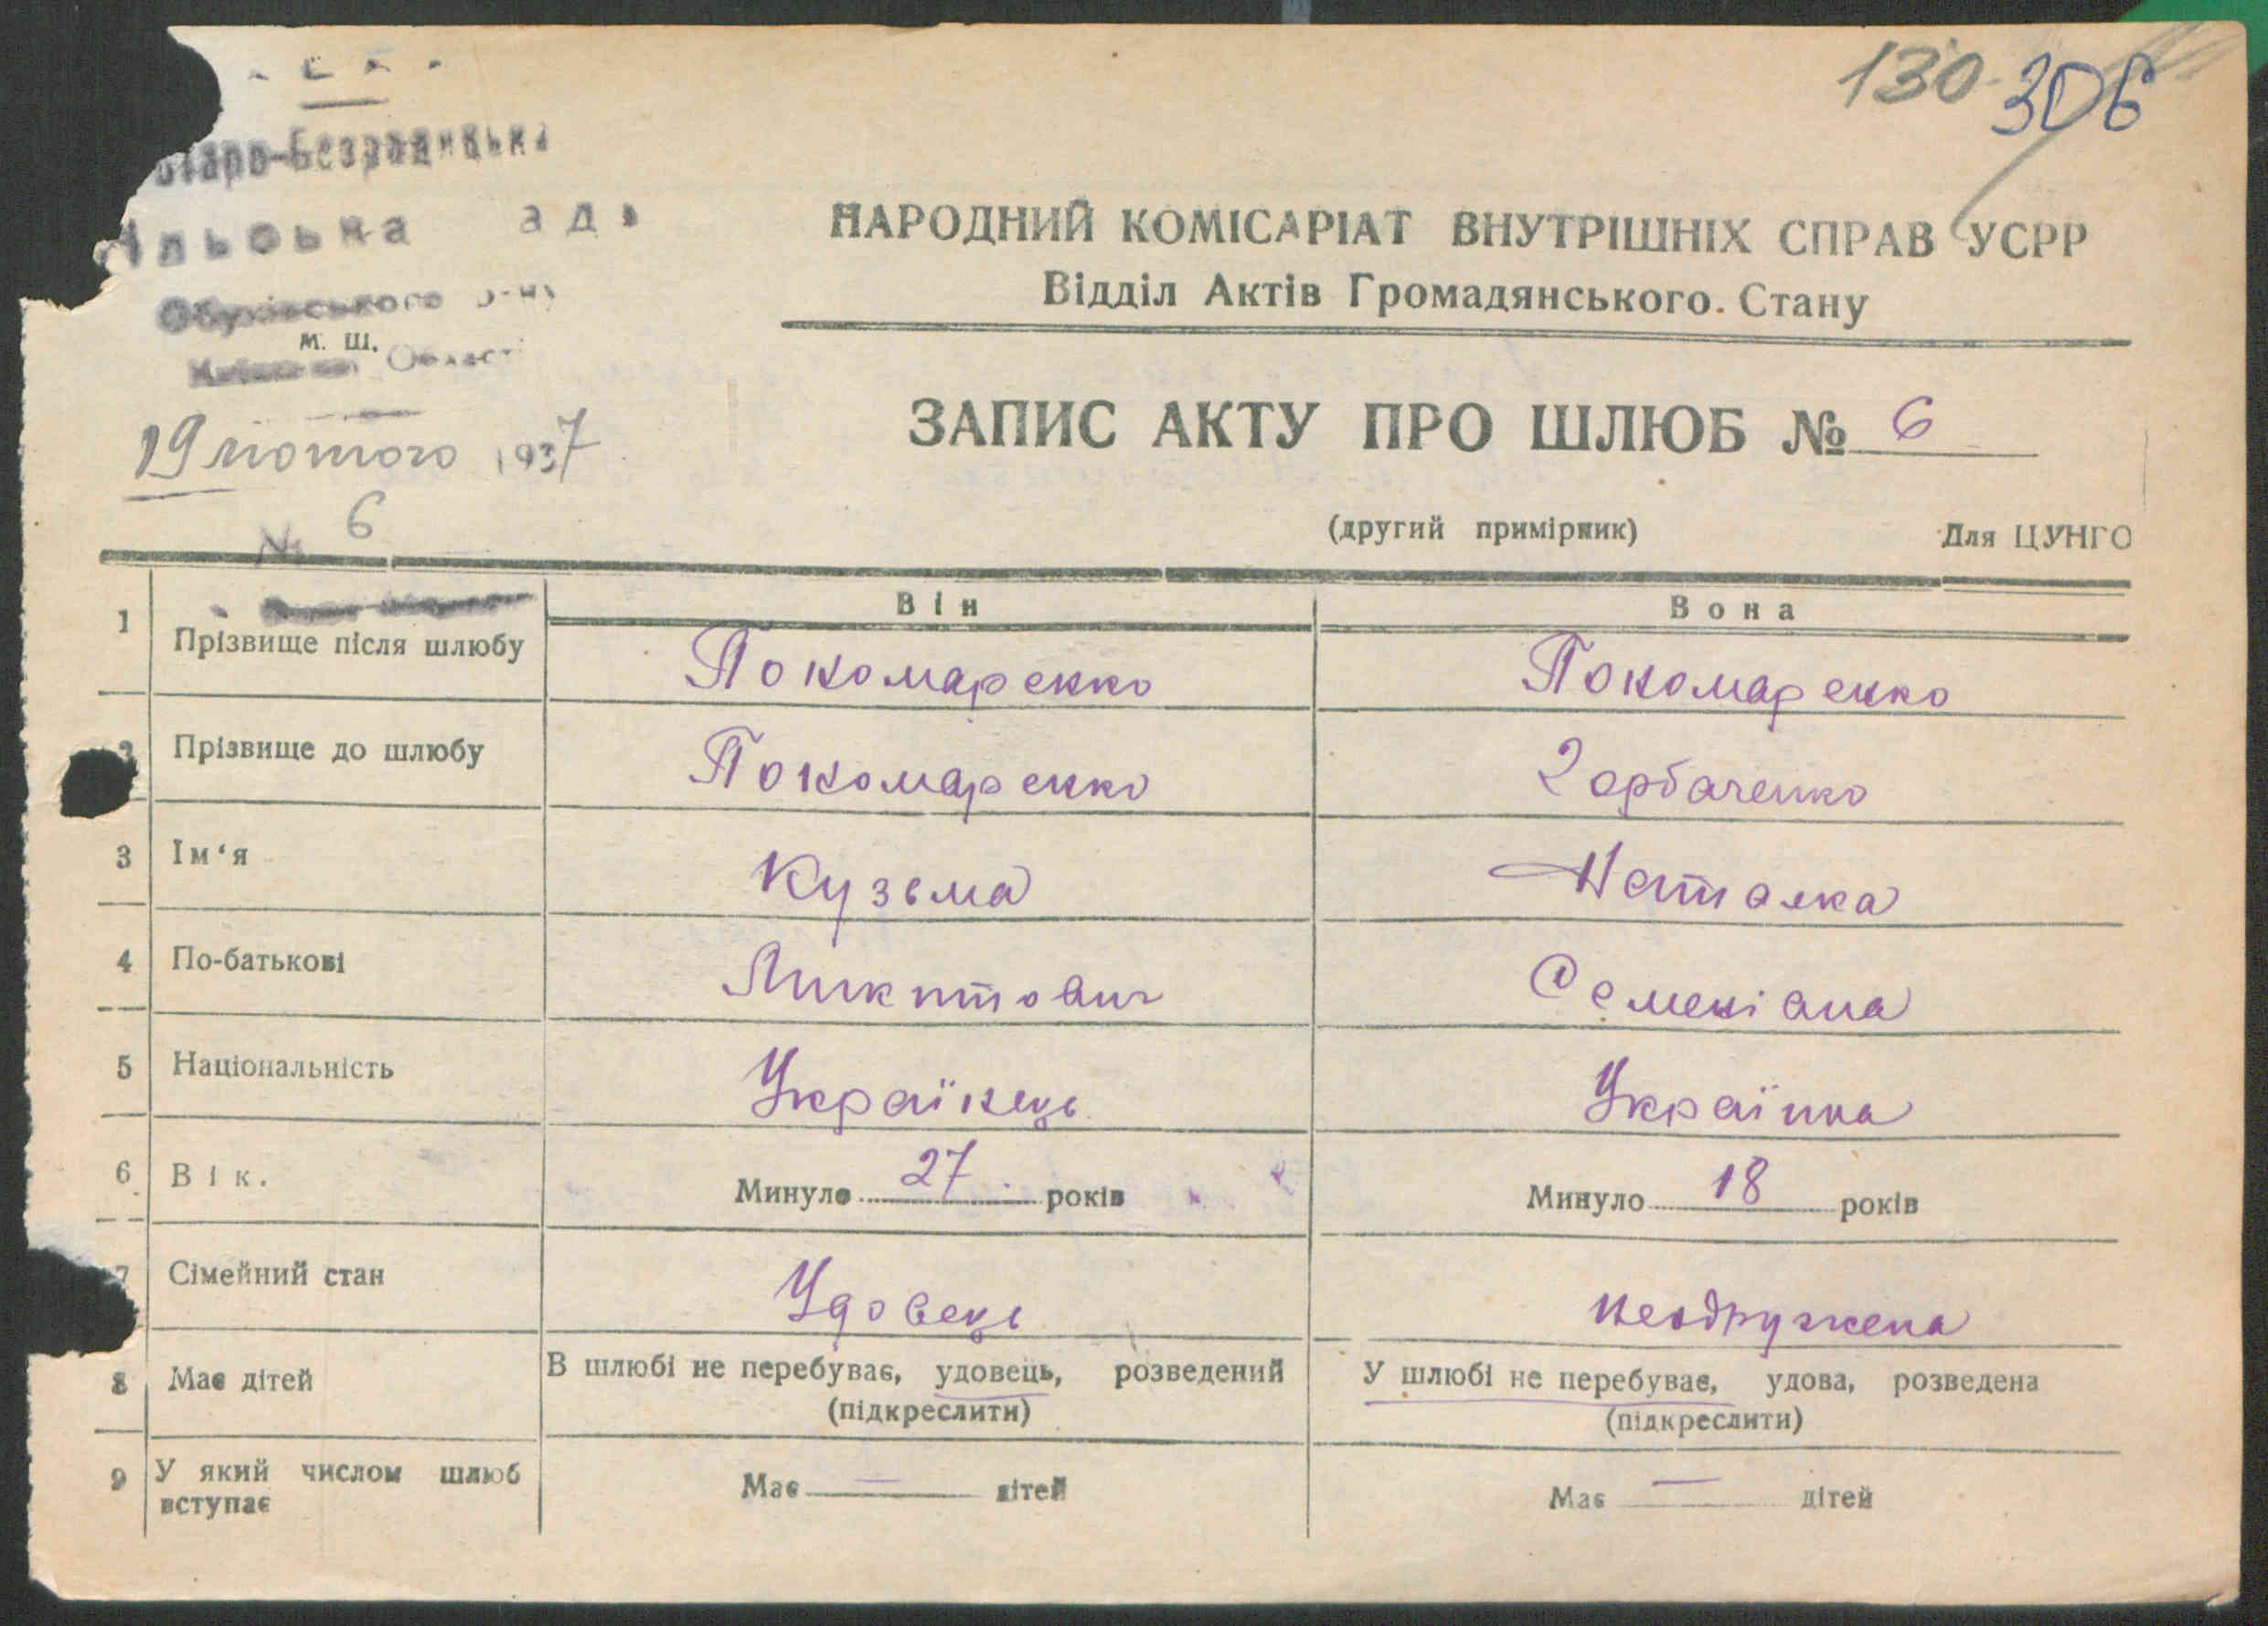 130 306
Старо-Безрадицька
Обухівського р-ну
М. Ш.
Київської Області
19 лютого 1937
№ 6
НАРОДНИЙ КОМІСАРІАТ ВНУТРІШНІХ СПРАВ УСРР
Відділ Актів Громадянського. Стану
ЗАПИС АКТУ ПРО ШЛЮБ № 6
(другий примірник) Для ЦУНГО
Він Вона
1 Прізвище після шлюбу Пономаренко Пономаренко
2 Прізвище до шлюбу Пономаренко Горбаченко
3 Ім‘я Кузьма Наталка
4 По-батькові Микитович Семенівна
5 Національність Українець Українка
6 Вік. Минуло 27 років Минуло 18 років
7 Сімейний стан Удовець неодружена
8 Має дітей В шлюбі не перебуває, удовець, розведений У шлюбі не перебуває, удова, розведена
(підкреслити) (підкреслити)
9 У який числом шлюб Має — дітей Має — дітей
вступає